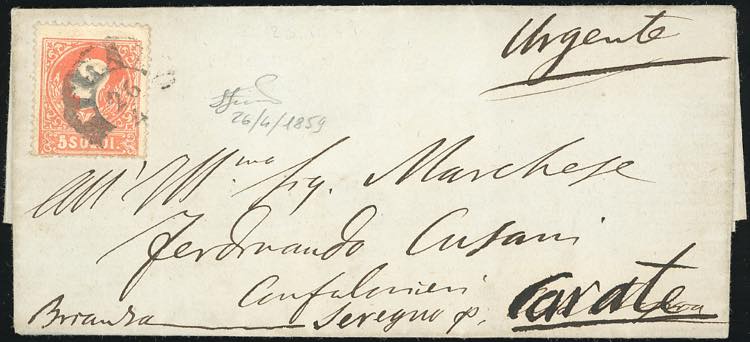 Urgente
26/4/1859
5 SOLDI
All' Ill.mo Sig. Marchese
Ferdinando Cusani
Confalonieri
Brianza Seregno p. Carate